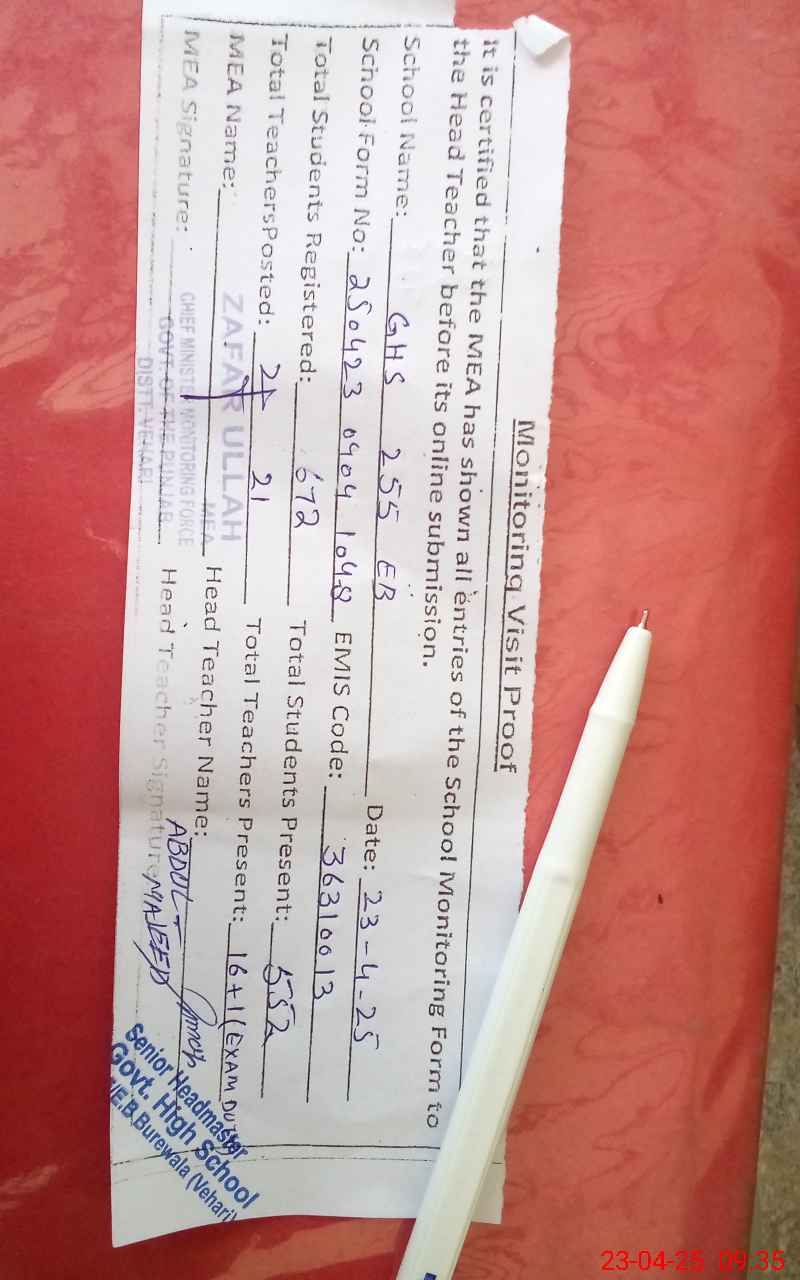 Monitoring Visit Proof
It is certified that the MEA has shown all entries of the School Monitoring Form to
the Head Teacher before its online submission.
School Name: GHS 255 EB Date: 23-4-25
School Form No: 250423 0404 1048 EMIS Code: 36310013
Total Students Registered: 672 Total Students Present: 552
Total TeachersPosted: 21 21 Total Teachers Present: 16+1 (EXAM DUTY)
MEA Name: ZAFAR ULLAH MEA Head Teacher Name: ABDUL MAJEED
MEA Signature: Head Teacher Signature
CHIEF MINISTER MONITORING FORCE
GOVT. OF THE PUNJAB
DISTT. VEHARI
Senior Headmaster
Govt. High School
/E.B Burewala (Vehari)
23-04-25 09:35